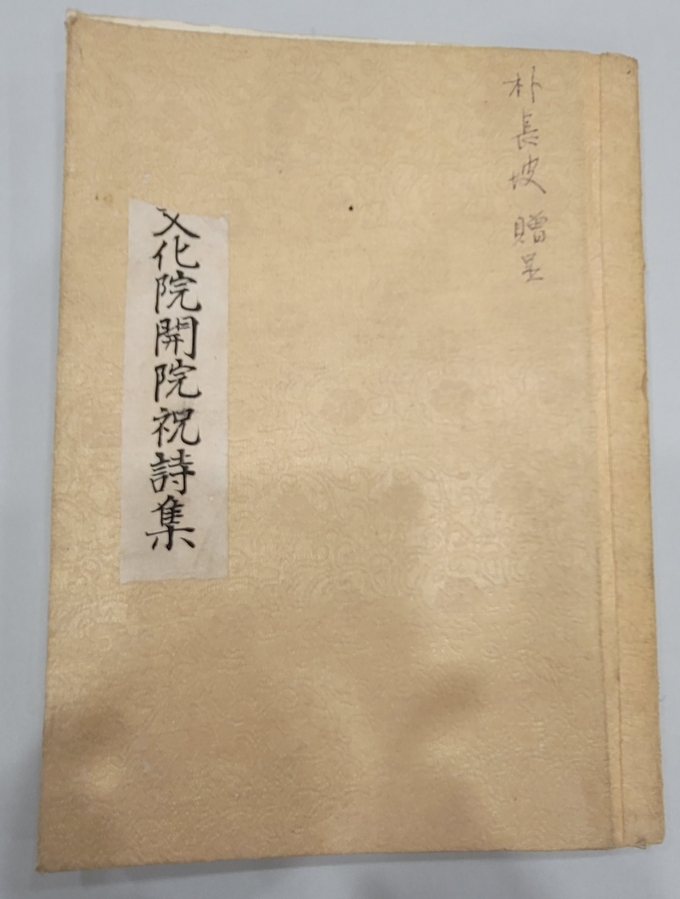 朴長坡 贈呈
文化院開院祝詩集